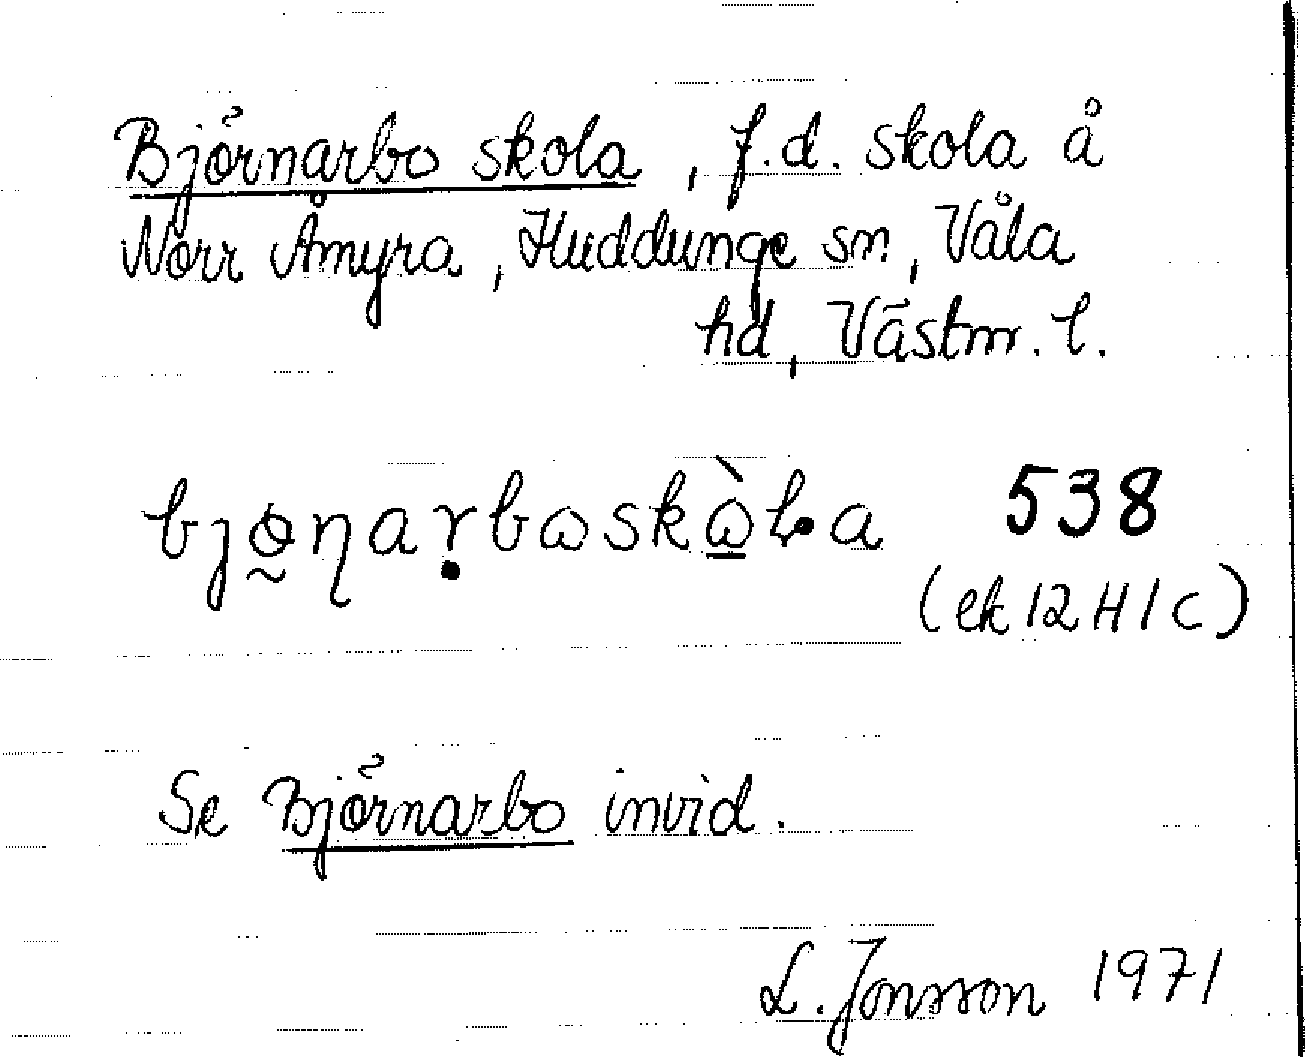 Björnarbo skola, f.d. skola å
Norr Åmyra, Huddunge sn, Våla
hd, Västm. l.
538
(ek 12 H 1 c)
Se Björnarbo invid.
L. Jonsson 1971